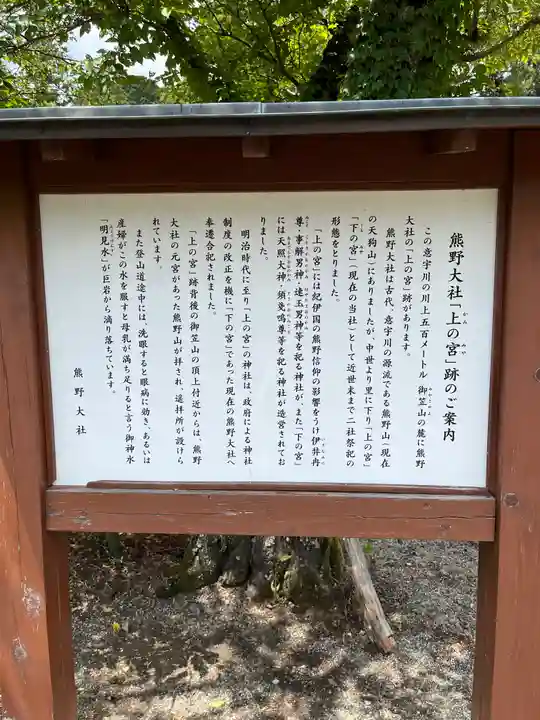 熊野大社「上の宮」跡のご案内
この意宇川の川上五百メートル 御笠山の麓に熊野
大社の「上の宮」跡があります。
熊野大社は古代、意宇川の源流である熊野山(現在
の天狗山)にありましたが、中世より里に下り「上の宮」
「下の宮」(現在の当社)として近世末まで二社祭祀の
形態をとりました。
「上の宮」には紀伊国の熊野信仰の影響をうけ伊弉冉
尊、事解男神、速玉男神等を祀る神社が、また「下の宮」
には天照大神、須戔嗚尊等を祀る神社が造営されてお
りました。
明治時代に至り「上の宮」の神社は、政府による神社
制度の改正を機に「下の宮」であった現在の熊野大社へ
奉遷合祀されました。
「上の宮」跡背後の御笠山の頂上付近からは、熊野
大社の元宮があった熊野山が拝され、遥拝所が設けら
れています。
また登山道途中には、洗眼すると眼病に効き、あるいは
産婦がこの水を服すと母乳が満ち足りると言う御神水
「明見水」が巨岩から滴り落ちています。
熊野大社